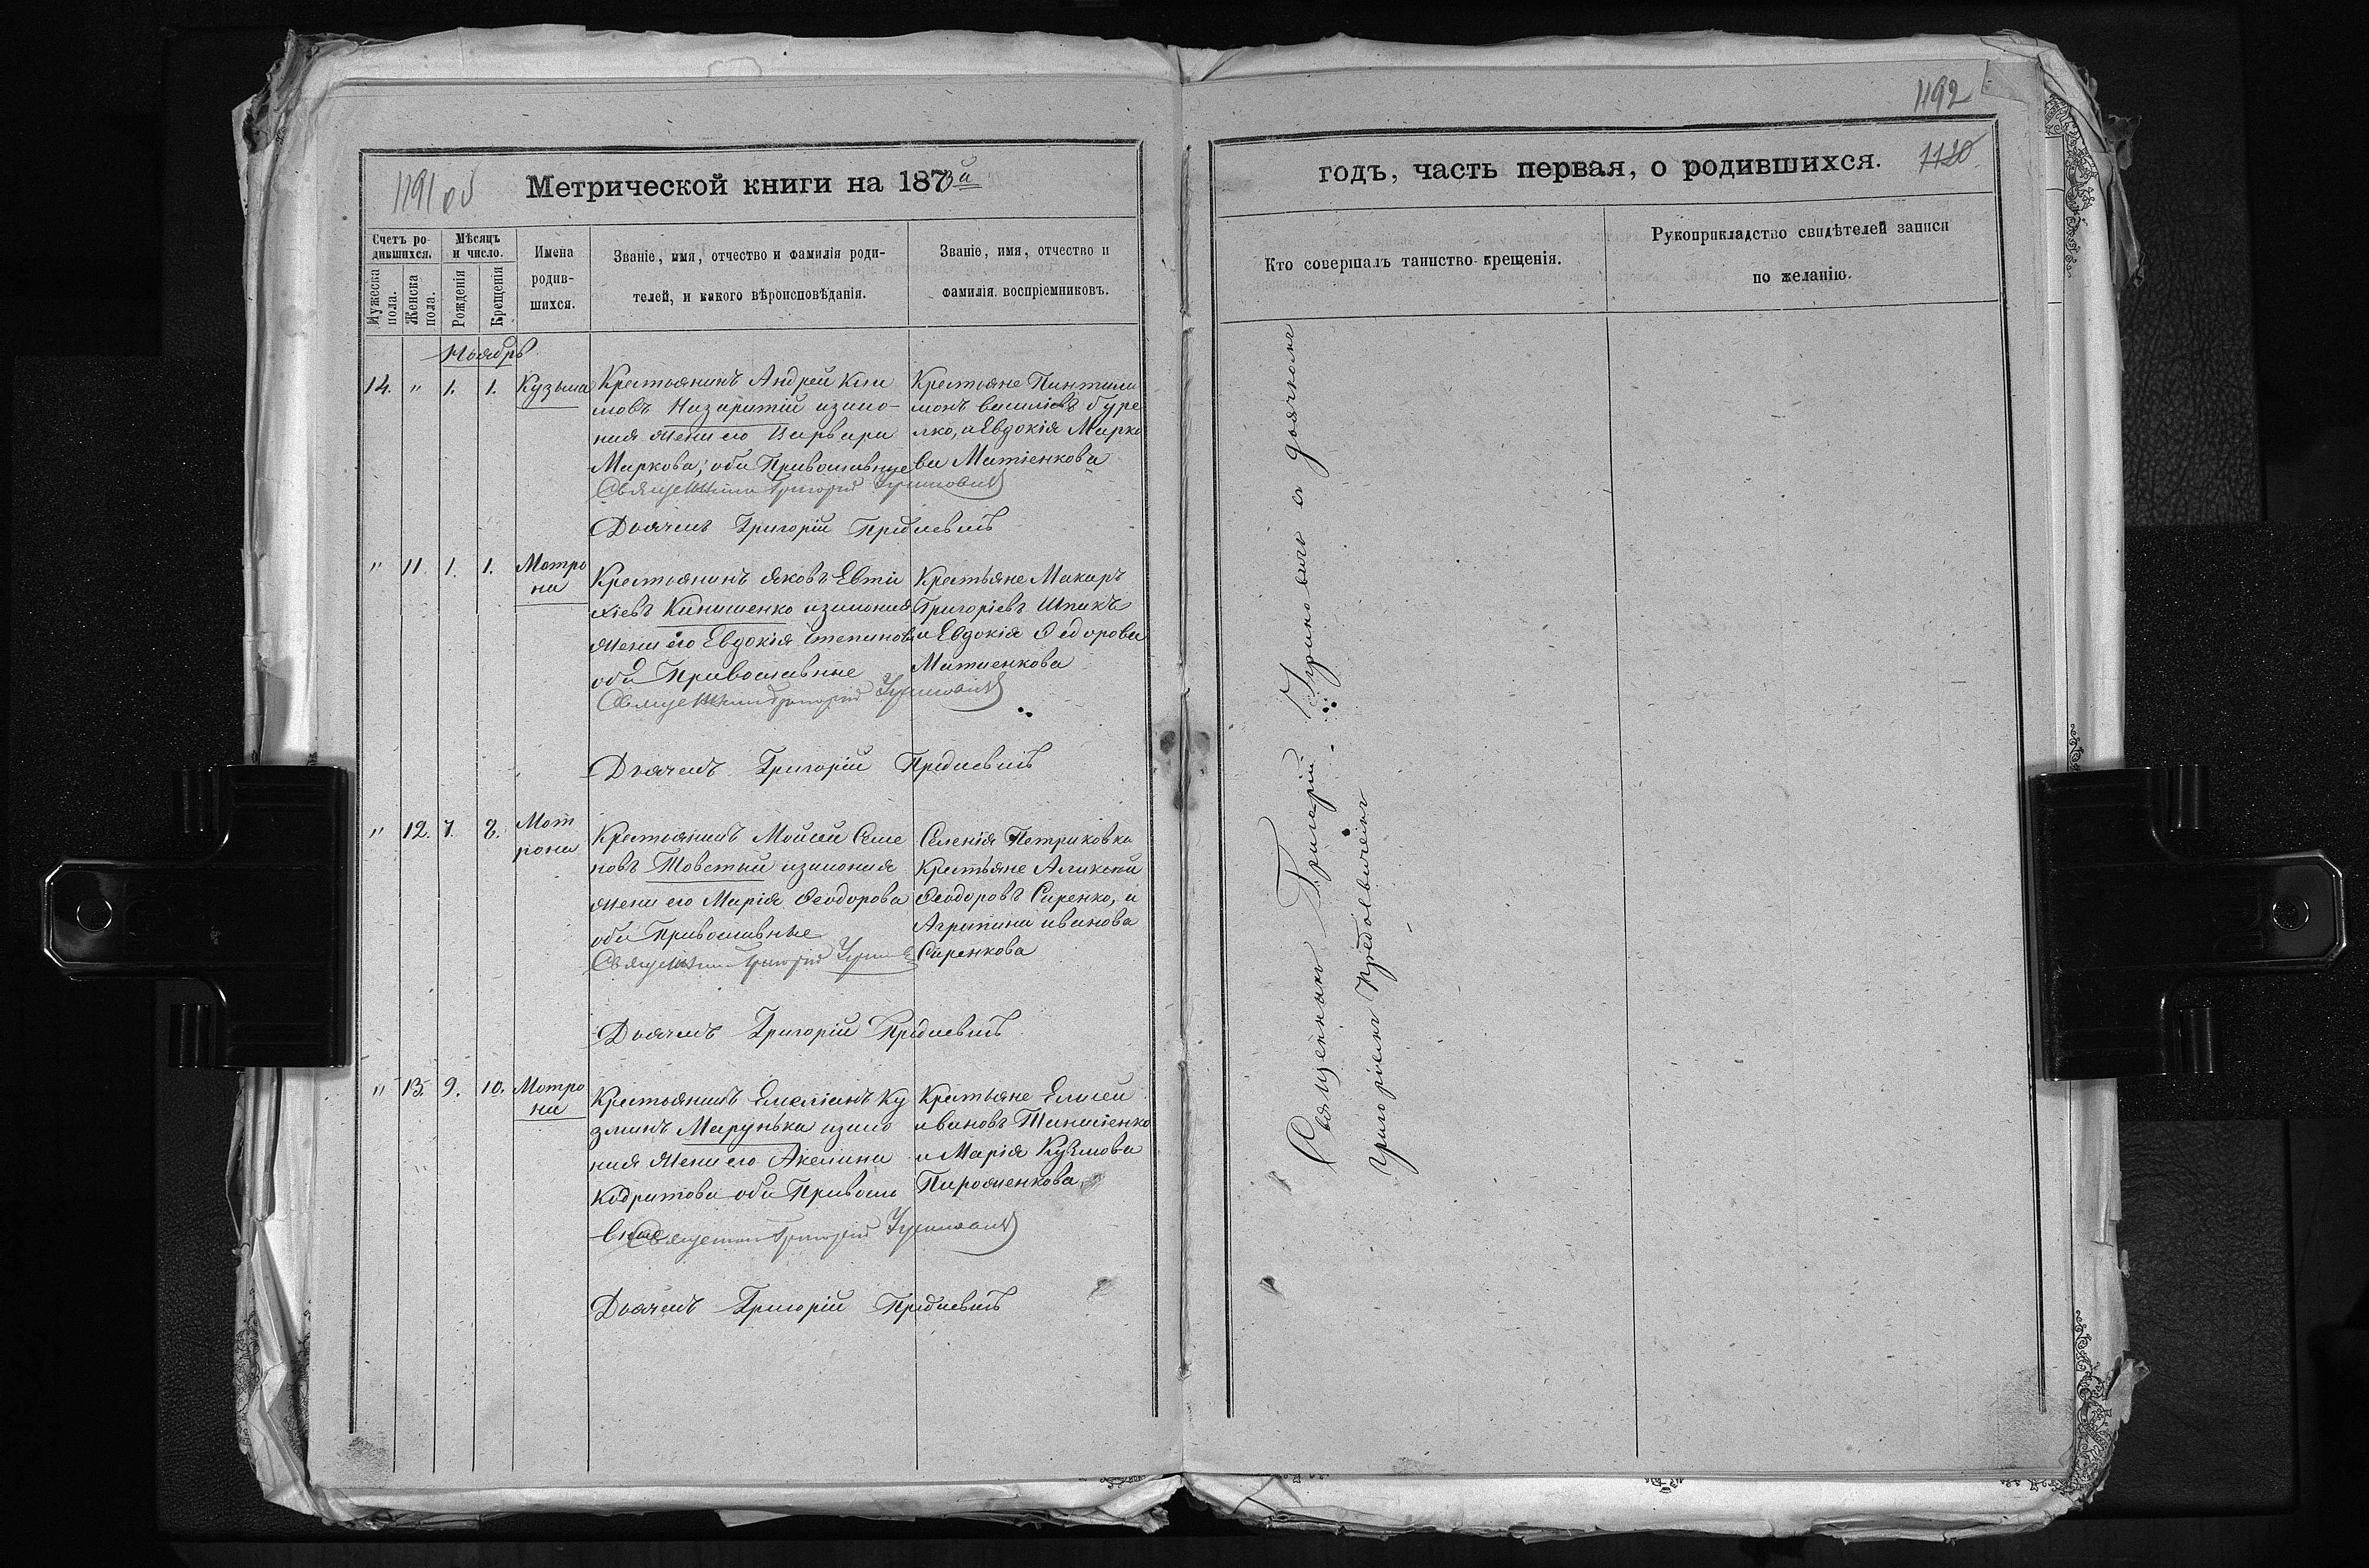 1191 об
Метрической книги на 1873й
Счетъ ро-
дившихся.
Мѣсяцъ
и число.
Мужеска
пола.
Женска
пола.
Рожденія
Крещенія
Имена
родив-
шихся.
Званіе, имя, отчество и фамилія роди-
телей, и какого вѣроисповѣданія.
Званіе, имя, отчество и
фамилія воспріемниковъ.
Ноябрь
14. " 1. 1. Кузьма
Крестьянинъ Андрей Кли
мовъ изако-
ния жены его Варвара
Маркова; оба Православные
Священникъ Григорій
Дьячекъ Григорій
Крестьяне Пантили
монъ Василіевъ Буре
лко, и Евдокія Марко
ва Матіенкова
" 11. 1. 1. Мотро
на
Крестьянинъ Яковъ Евти
хіевъ изакония
жены его Евдокія Степанова
оба Православные
Священникъ Григорій
Дьячекъ Григорій
Крестьяне Макаръ
Григоріевъ Шпакъ
и Евдокія Федорова
Матиенкова
" 12. 7. 8. Мот
рона
Крестьянинъ Мойсей Семе
новъ Товстый изакония
жены его Марія Феодорова
оба Православные
Священникъ Григорій
Дьячекъ Григорій
Селенія Петриковки
Крестьяне Аликсѣй
Феодоровъ Сиренко, и
Агрипина Иванова
Сиренкова
" 13. 9. 10. Мотро
на
Крестьянинъ Емеліанъ Ку
зминъ Марунька изако
ния жены его Акелина
Кодратова оба Правосла
вные
Священникъ Григорій
Дьячекъ Григорій
Крестьяне Елисей
Ивановъ
и Марія Кузмова
Пироженкова
1192
годъ, часть первая, о родившихся.
1180
Кто совершалъ таинство крещенія.
Рукоприкладство свидѣтелей записи
по желанію.
Священникъ Григорій съ дьячкомъ
Григоріемъ